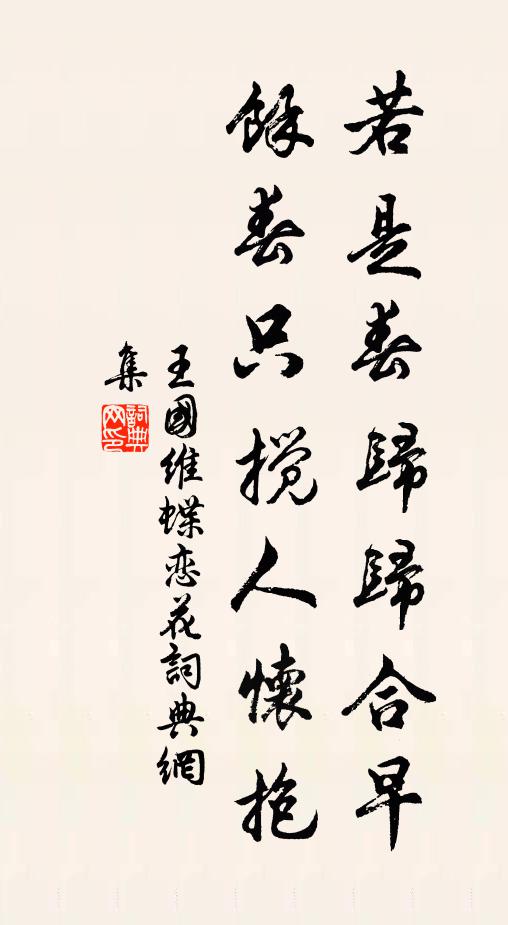 若是春歸歸合早
餘春只搅人懷抱
王國維蝶恋花詞典網
集
詞典网印